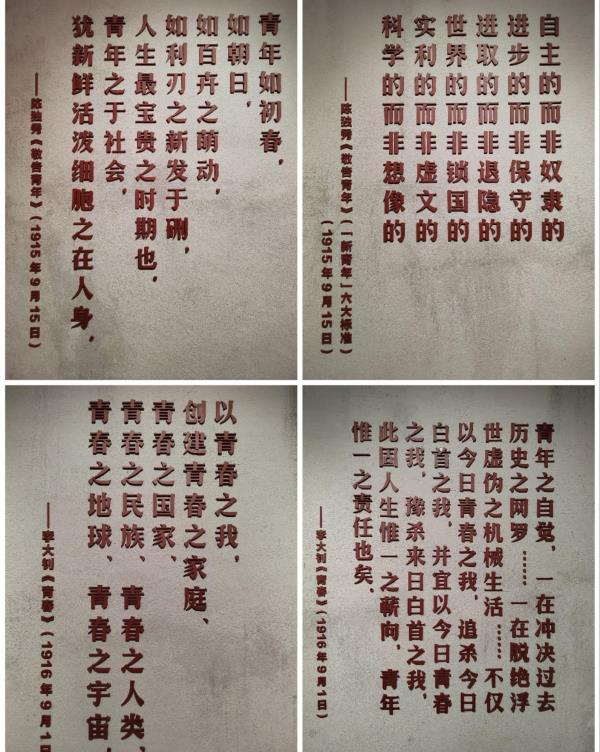 青年如初春，
如朝日，
如百卉之萌动，
如利刃之新发于硎，
人生最宝贵之时期也，
青年之于社会，
犹新鲜活泼细胞之在人身，
——陈独秀《敬告青年》（1915年9月15日）
自主的而非奴隶的
进步的而非保守的
进取的而非退隐的
世界的而非锁国的
实利的而非虚文的
科学的而非想像的
——陈独秀《敬告青年》（「新青年」六大标准）
（1915年9月15日）
以青春之我，
创建青春之家庭、
青春之国家、
青春之民族、青春之人类、
青春之地球、青春之宇宙，
——李大钊《青春》（1916年9月1日
青年之自觉，一在冲决过去
历史之网罗……一在脱绝浮
世虚伪之机械生活……不仅
以今日青春之我，追杀今日
白首之我，并宜以今日青春
之我，豫杀来日白首之我，
此固人生惟一之蕲向，青年
惟一之责任也矣、
——李大钊《青春》（1916年9月1日）